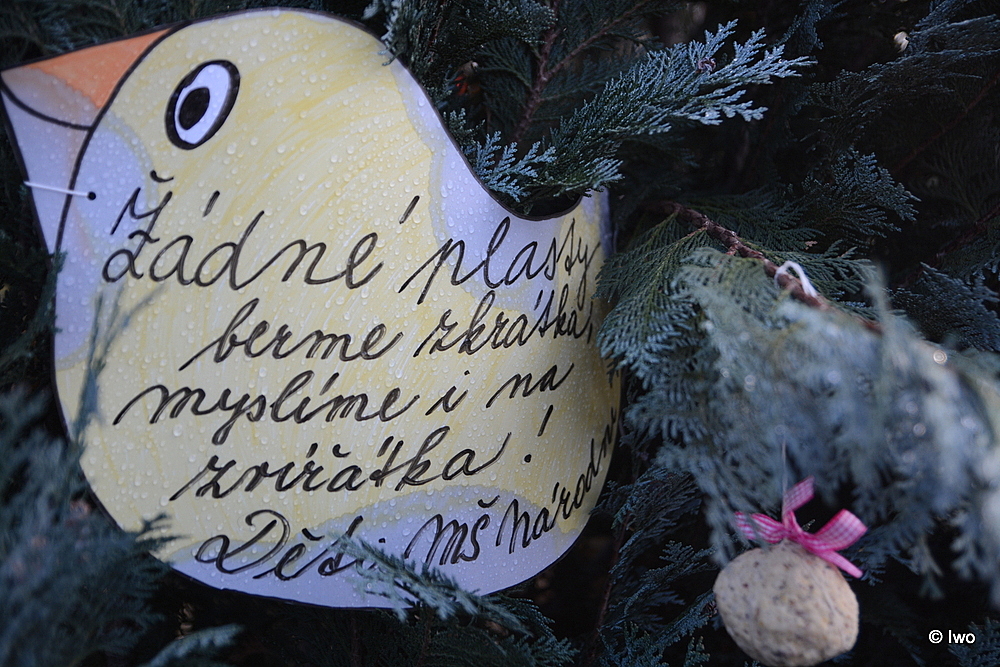 Žádné plasty
berme zkrátka,
myslíme i na
zvířátka!
Děti MŠ Národní
© lwo